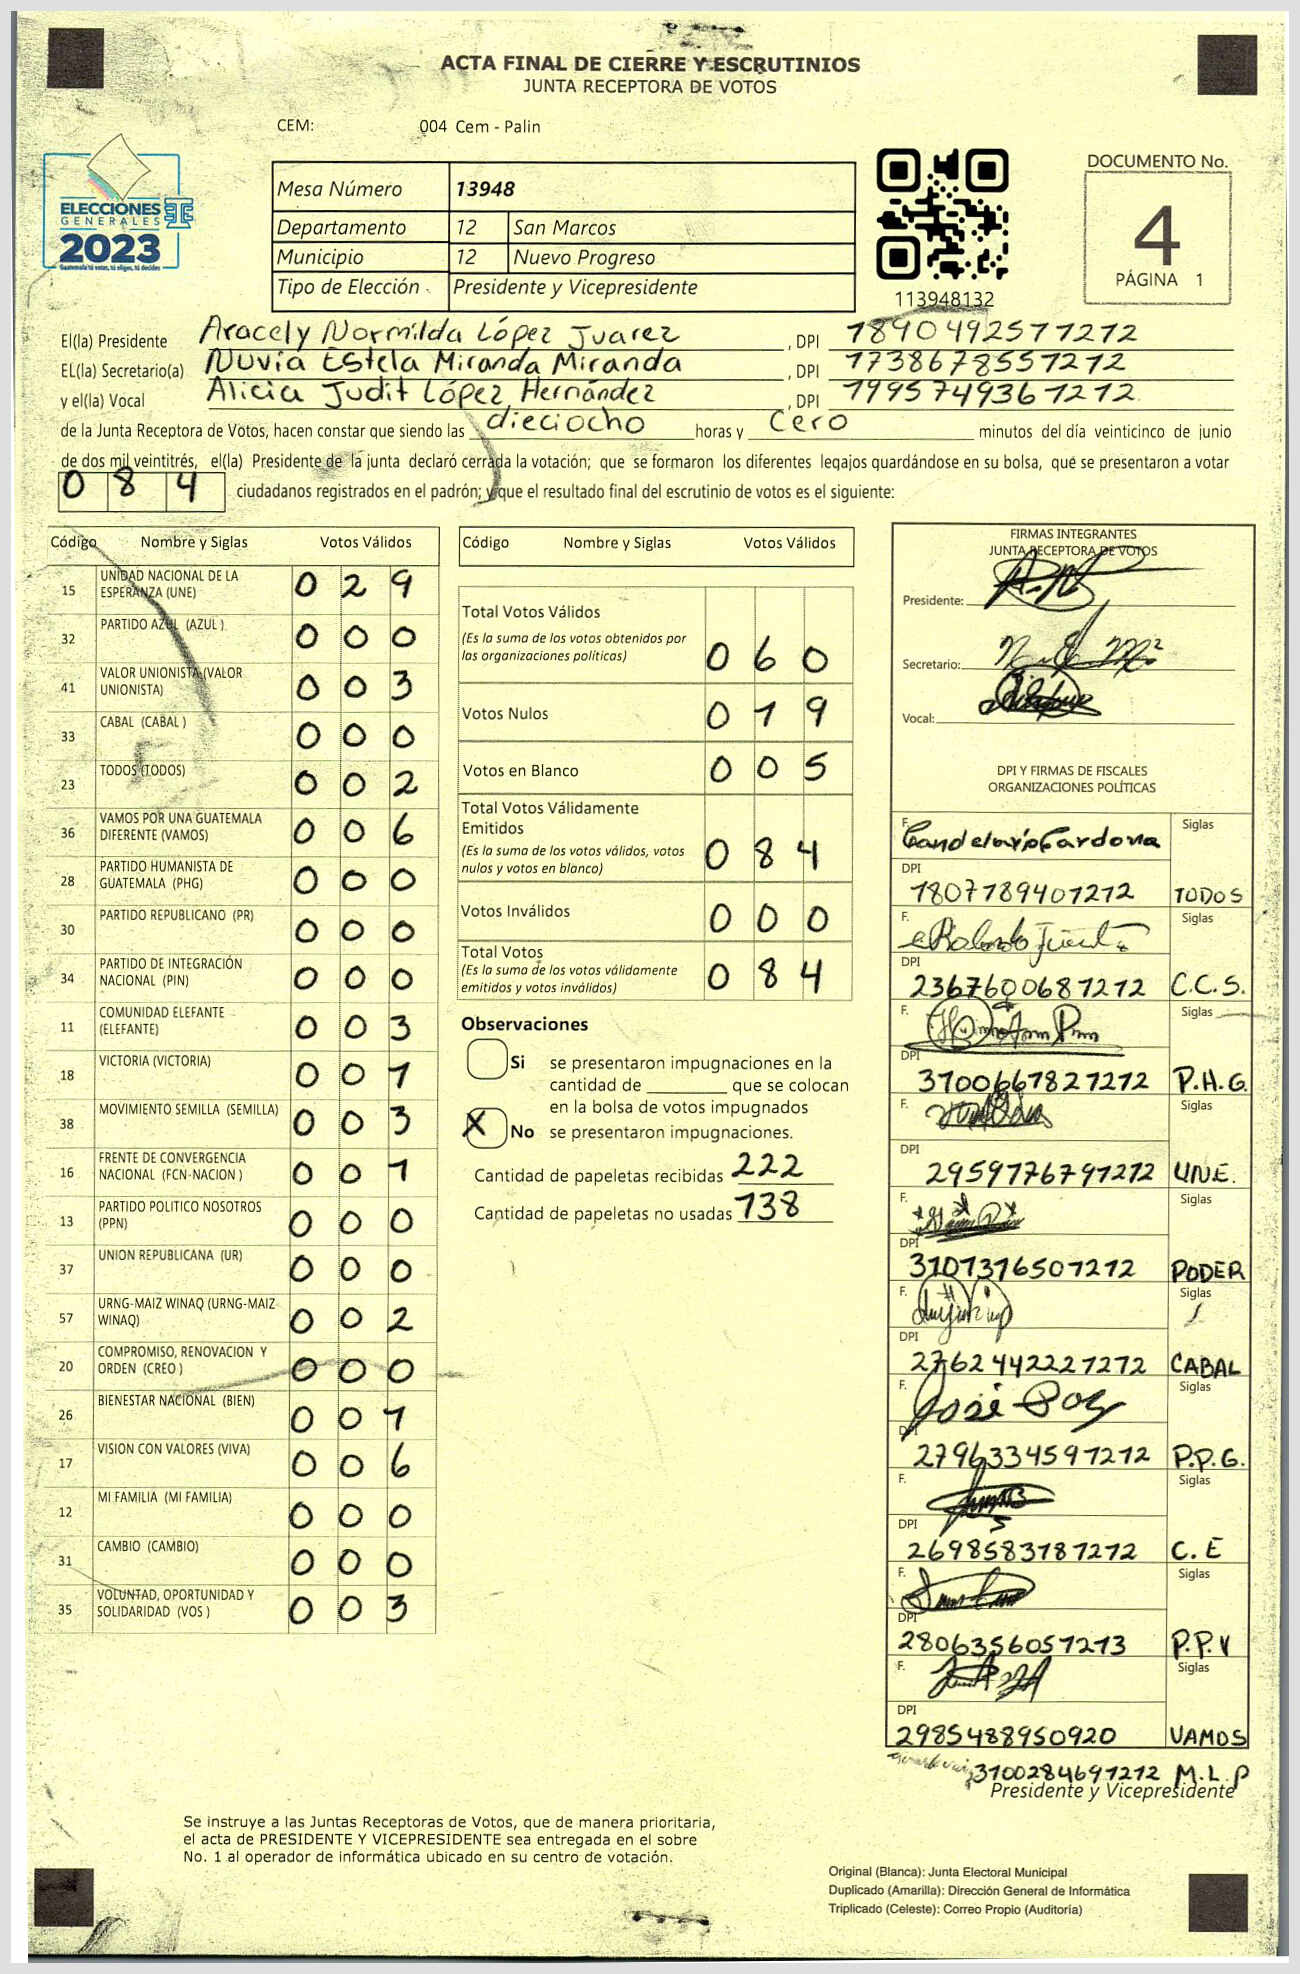 ACTA FINAL DE CIERRE Y ESCRUTINIOS
JUNTA RECEPTORA DE VOTOS
CEM: 004 Cem - Palin
ELECCIONES
GENERALES
2023
Guatemala tú votas, tú eliges, tú decides
Mesa Número 13948
Departamento 12 San Marcos
Municipio 12 Nuevo Progreso
Tipo de Elección Presidente y Vicepresidente
113948132
DOCUMENTO No.
4
PÁGINA 1
El(la) Presidente Aracely Normilda López Juarez, DPI 1890492571212
EL(la) Secretario(a) Nuvia Estela Miranda Miranda, DPI 1738678557212
y el(la) Vocal Alicia Judit López Hernández, DPI 1995749361212
de la Junta Receptora de Votos, hacen constar que siendo las dieciocho horas y Cero minutos del día veinticinco de junio
de dos mil veintitrés, el(la) Presidente de la junta declaró cerrada la votación; que se formaron los diferentes legajos guardándose en su bolsa, que se presentaron a votar
084 ciudadanos registrados en el padrón; y que el resultado final del escrutinio de votos es el siguiente:
Código Nombre y Siglas Votos Válidos
15 UNIDAD NACIONAL DE LA ESPERANZA (UNE) 029
32 PARTIDO AZUL (AZUL ) 000
41 VALOR UNIONISTA (VALOR UNIONISTA) 003
33 CABAL (CABAL ) 000
23 TODOS (TODOS) 002
36 VAMOS POR UNA GUATEMALA DIFERENTE (VAMOS) 006
28 PARTIDO HUMANISTA DE GUATEMALA (PHG) 000
30 PARTIDO REPUBLICANO (PR) 000
34 PARTIDO DE INTEGRACIÓN NACIONAL (PIN) 000
11 COMUNIDAD ELEFANTE (ELEFANTE) 003
18 VICTORIA (VICTORIA) 001
38 MOVIMIENTO SEMILLA (SEMILLA) 003
16 FRENTE DE CONVERGENCIA NACIONAL (FCN-NACION ) 001
13 PARTIDO POLITICO NOSOTROS (PPN) 000
37 UNION REPUBLICANA (UR) 000
57 URNG-MAIZ WINAQ (URNG-MAIZ WINAQ) 002
20 COMPROMISO, RENOVACION Y ORDEN (CREO ) 000
26 BIENESTAR NACIONAL (BIEN) 001
17 VISION CON VALORES (VIVA) 006
12 MI FAMILIA (MI FAMILIA) 000
31 CAMBIO (CAMBIO) 000
35 VOLUNTAD, OPORTUNIDAD Y SOLIDARIDAD (VOS ) 003
Código Nombre y Siglas Votos Válidos
Total Votos Válidos
(Es la suma de los votos obtenidos por
las organizaciones políticas) 060
Votos Nulos 019
Votos en Blanco 005
Total Votos Válidamente
Emitidos
(Es la suma de los votos válidos, votos
nulos y votos en blanco) 084
Votos Inválidos 000
Total Votos
(Es la suma de los votos válidamente
emitidos y votos inválidos) 084
Observaciones
Si se presentaron impugnaciones en la
cantidad de ________ que se colocan
en la bolsa de votos impugnados
X No se presentaron impugnaciones.
Cantidad de papeletas recibidas 222
Cantidad de papeletas no usadas 138
FIRMAS INTEGRANTES
JUNTA RECEPTORA DE VOTOS
Presidente:
Secretario:
Vocal:
DPI Y FIRMAS DE FISCALES
ORGANIZACIONES POLÍTICAS
F. Candelario Cardona Siglas
DPI 1807189401212 TODOS
F. Siglas
DPI 2367600681212 C.C.S.
F. Siglas
DPI 3100661821212 P.H.G.
F. Siglas
DPI 2959176791212 UNE.
F. Siglas
DPI 3101316501212 PODER
F. Siglas
DPI 2762442221212 CABAL
F. Siglas
DPI 2796334591212 P.P.G.
F. Siglas
DPI 2698583181212 C.E
F. Siglas
DPI 2806356051213 P.P.V
F. Siglas
DPI 2985488950920 VAMOS
3100284691212 M.L.P
Presidente y Vicepresidente
Se instruye a las Juntas Receptoras de Votos, que de manera prioritaria,
el acta de PRESIDENTE Y VICEPRESIDENTE sea entregada en el sobre
No. 1 al operador de informática ubicado en su centro de votación.
Original (Blanca): Junta Electoral Municipal
Duplicado (Amarilla): Dirección General de Informática
Triplicado (Celeste): Correo Propio (Auditoría)